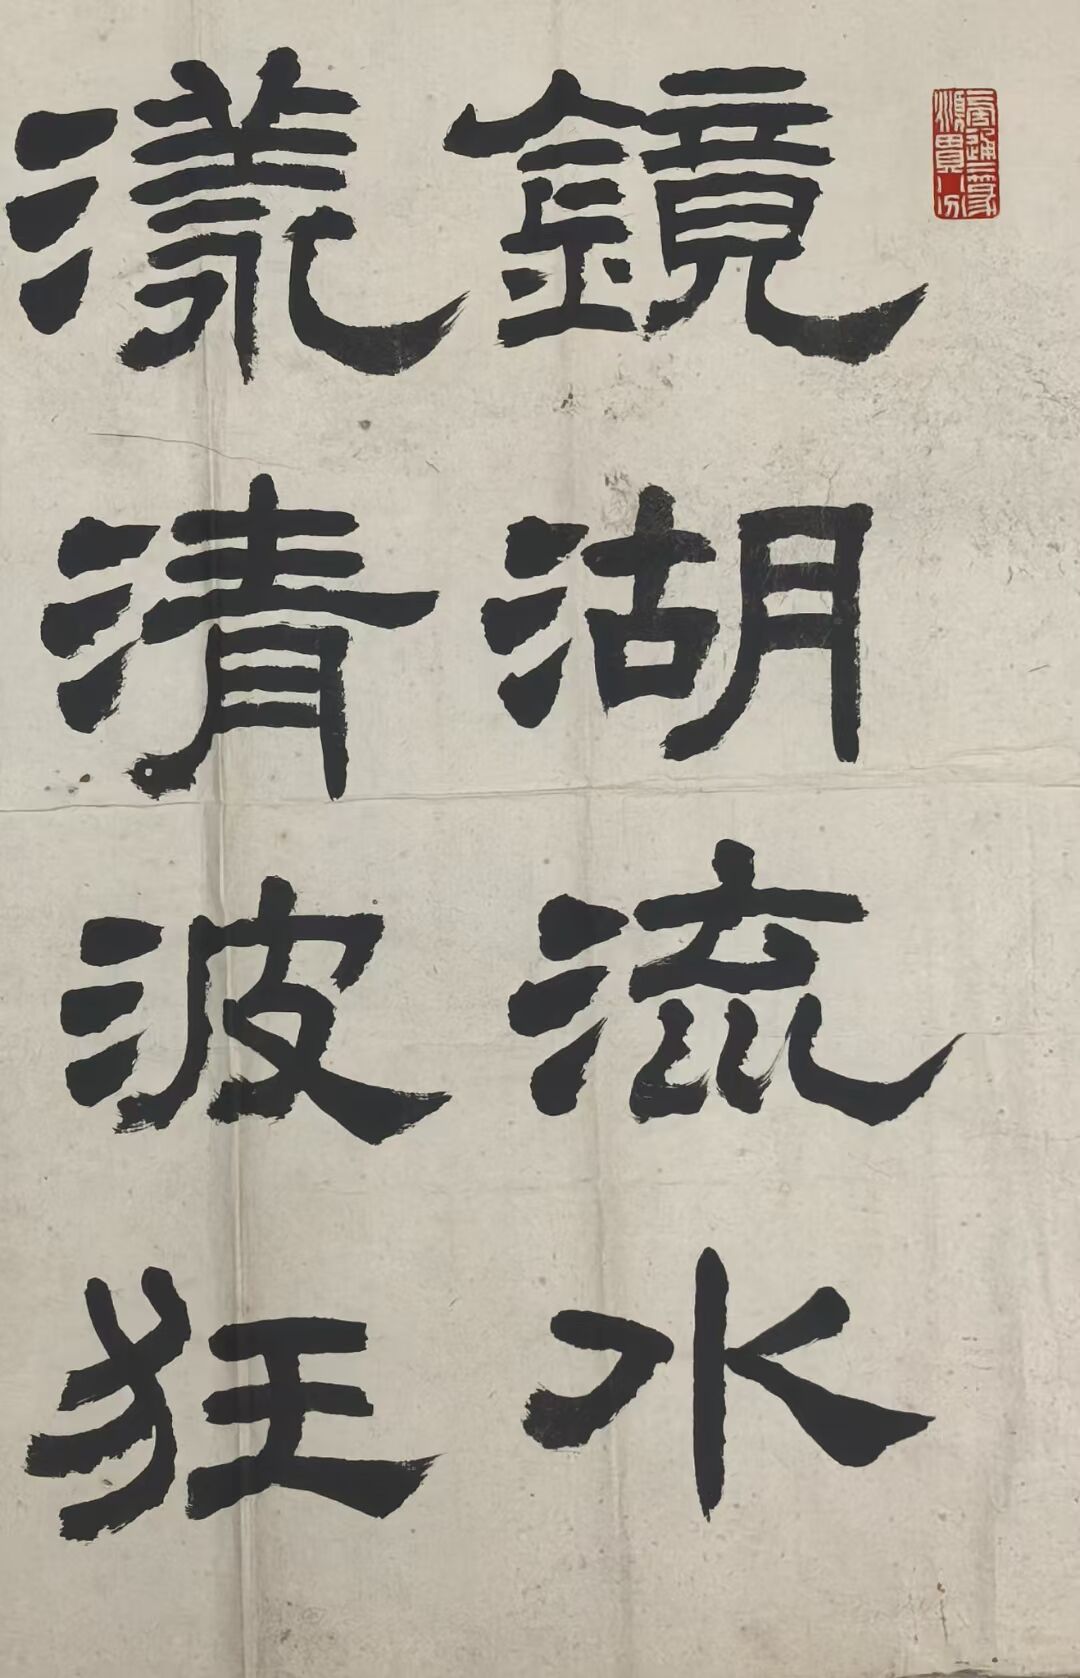 鏡湖流水
漾清波狂